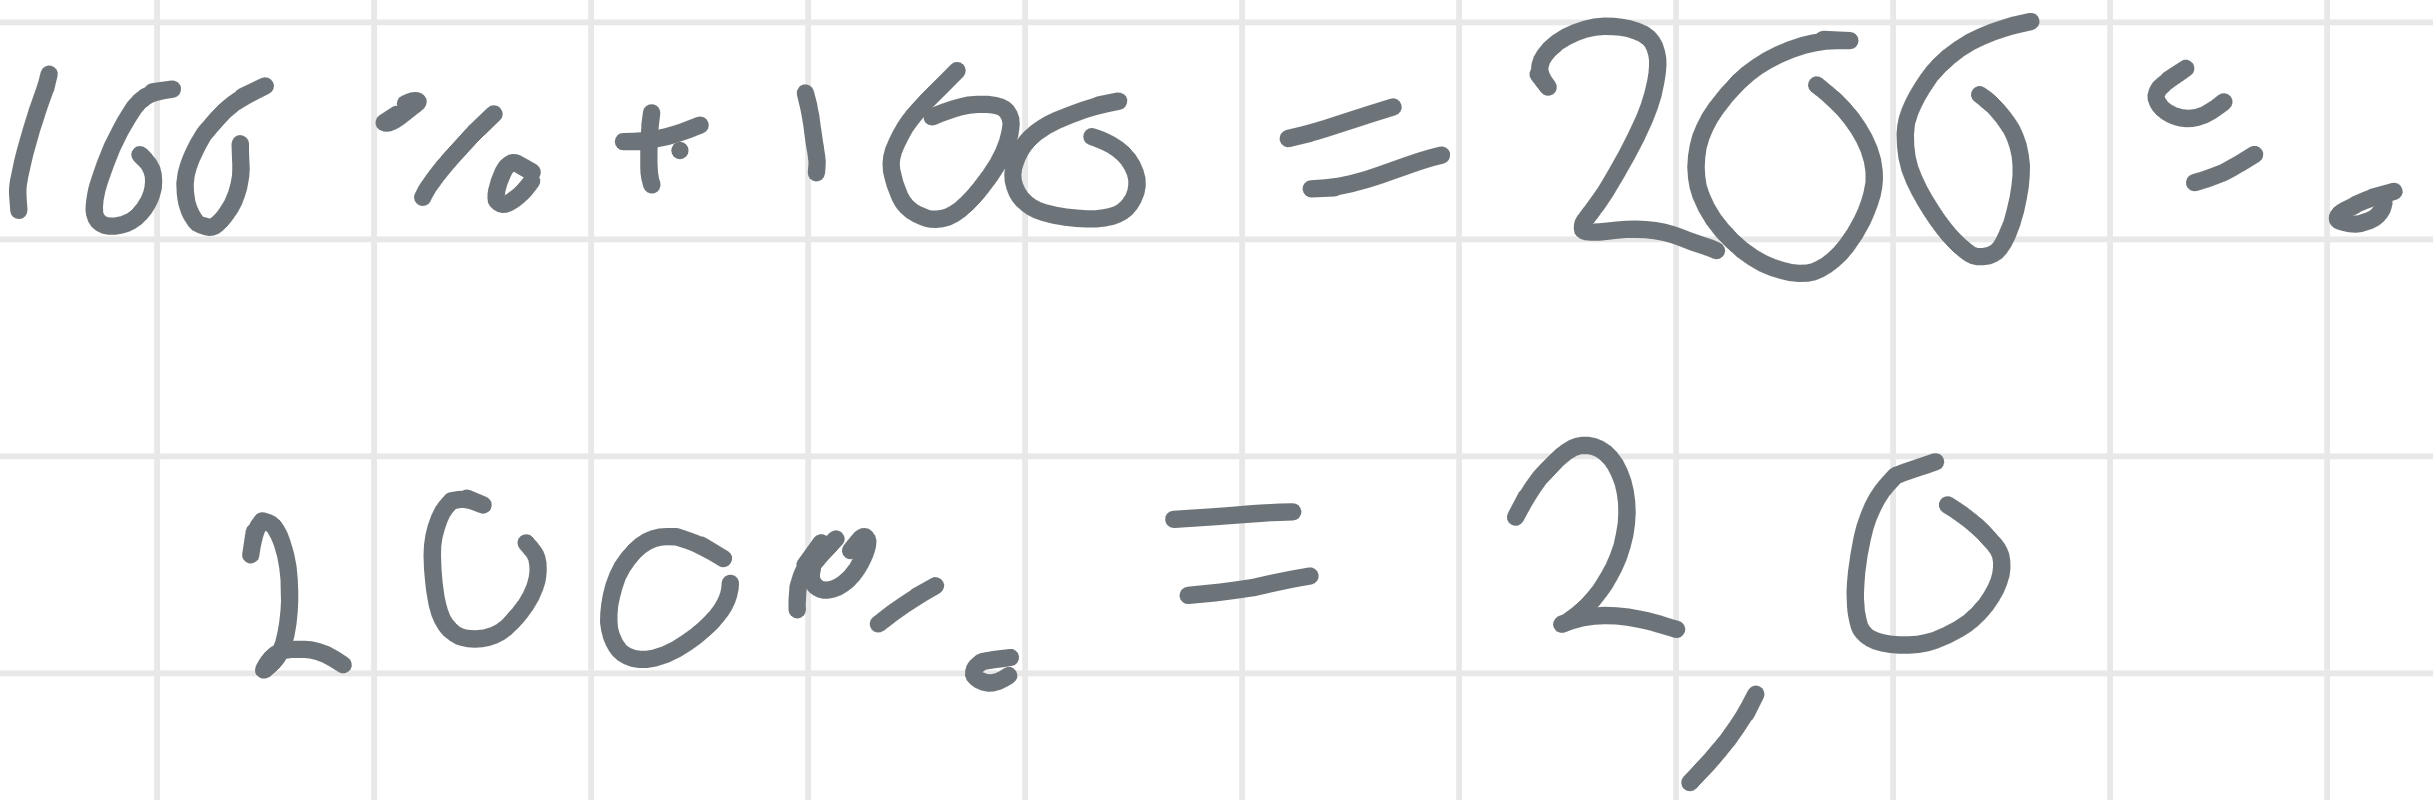 100 % + 100 = 200 %
200 % = 2,0